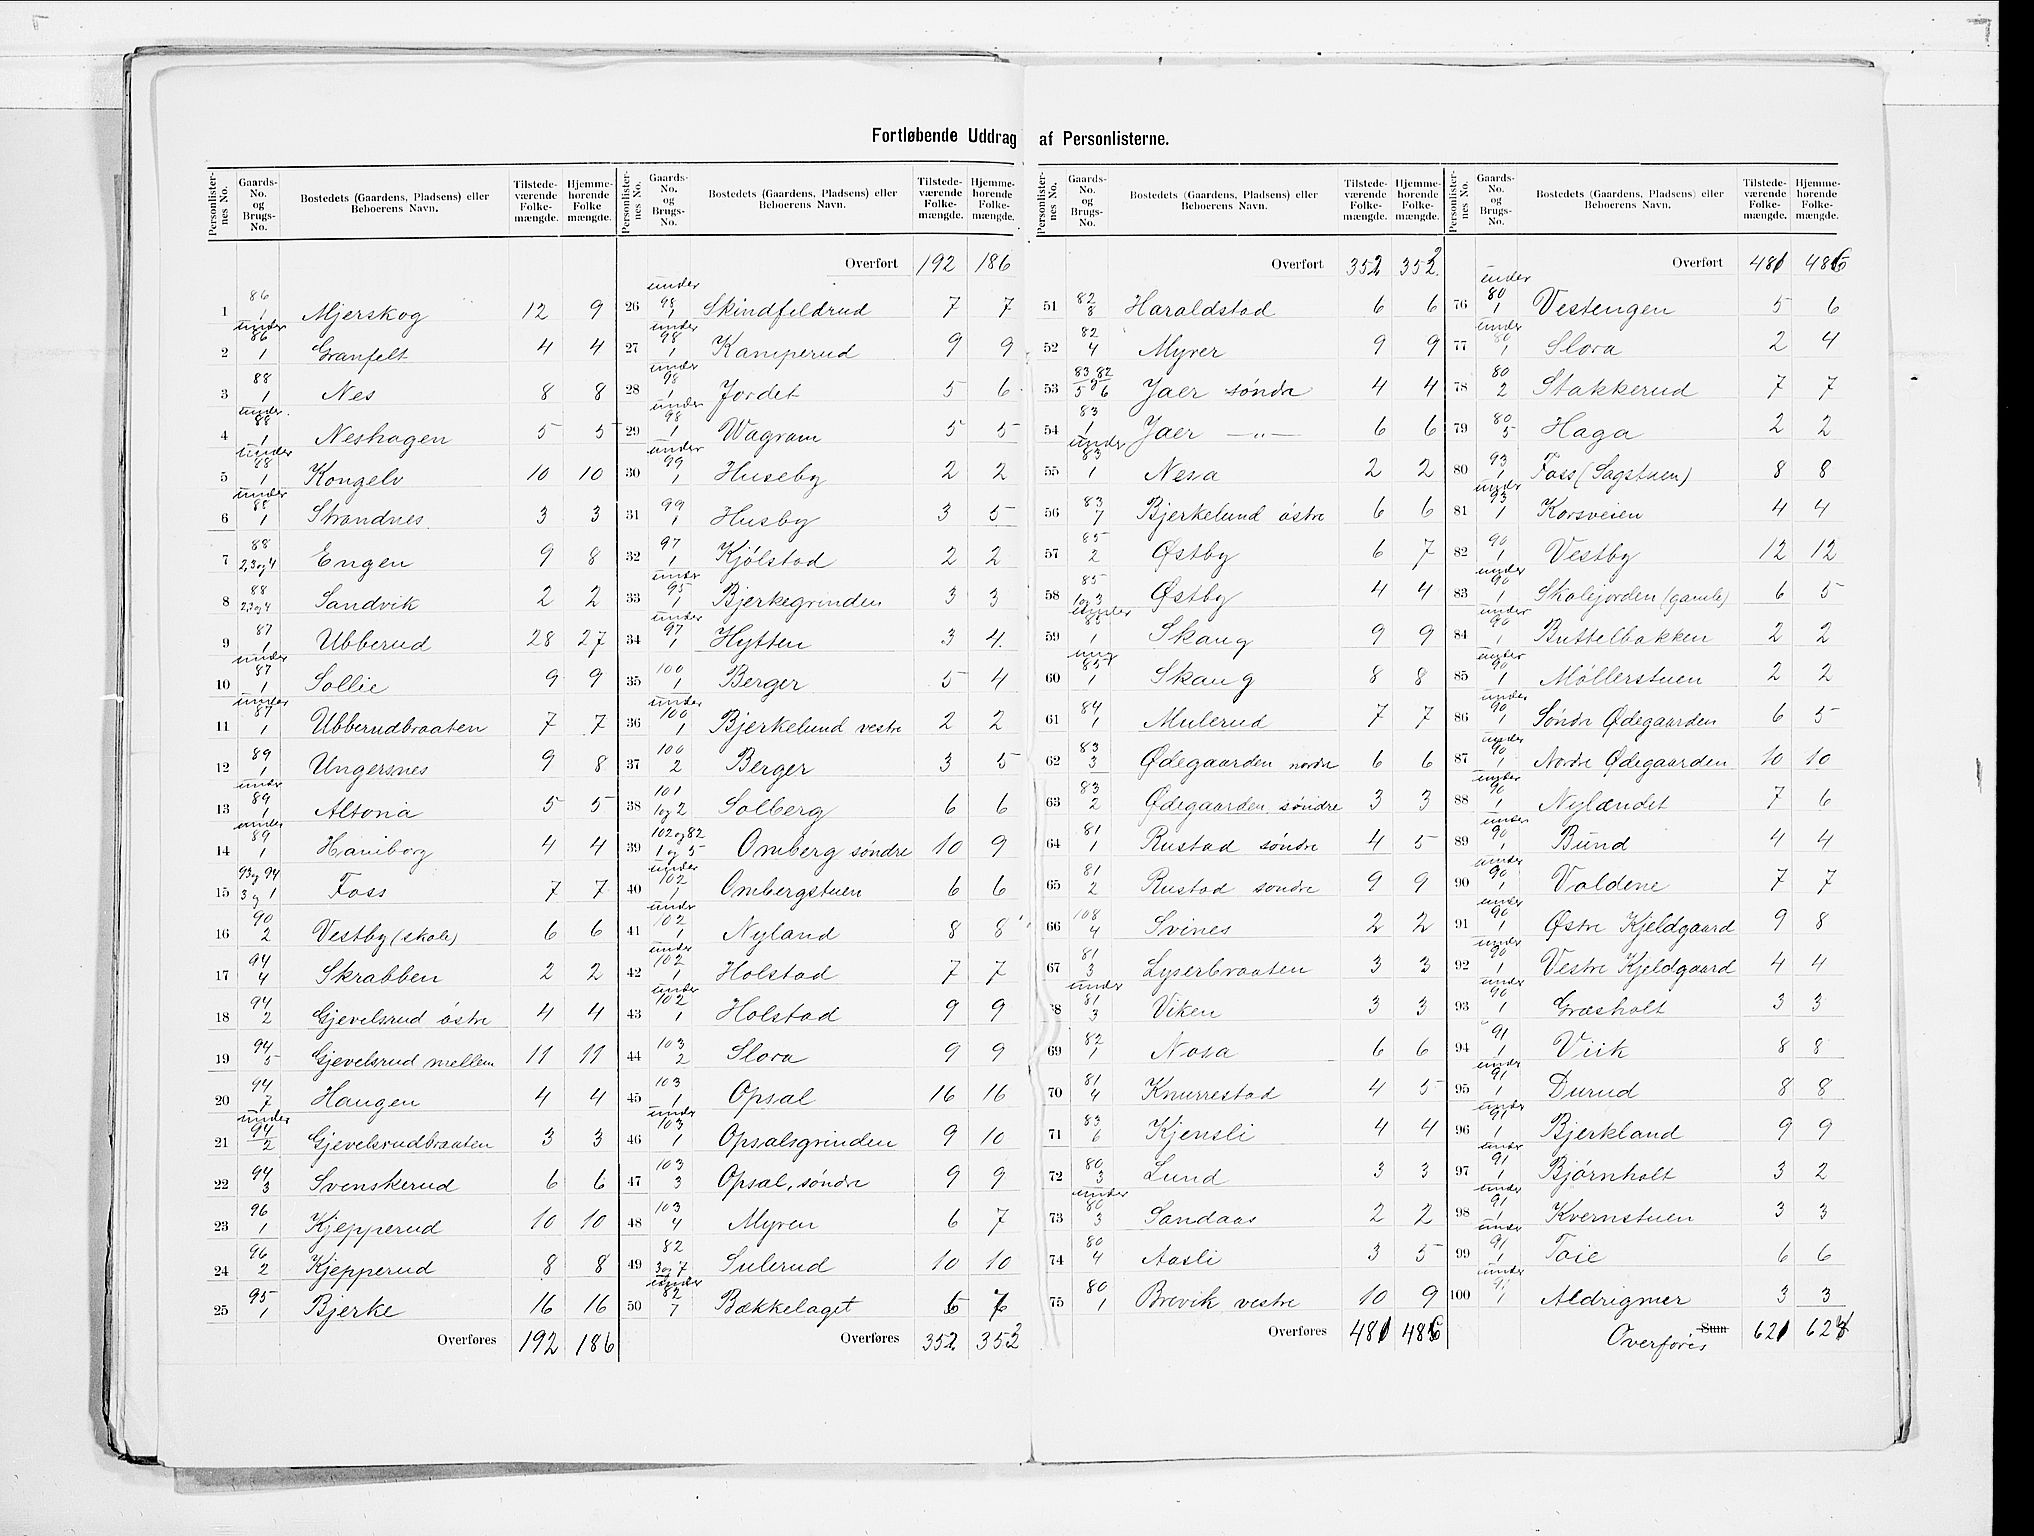 Fortløbende Uddrag af Personlisterne.
Personlister-nes No. | Gaards-No. og Brugs-No. | Bostedets (Gaardens, Pladsens) eller Beboerens Navn. | Tilstede-værende Folke-mængde. | Hjemme-hørende Folke mængde.
1 | 86 1 | Mjerskog | 12 | 9
2 | under 86 1 | Granfelt | 4 | 4
3 | 88 1 | Nes | 8 | 8
4 | under 88 1 | Neshagen | 5 | 5
5 | under 88 1 | Kongelv | 10 | 10
6 | under 88 1 | Strandnes | 3 | 3
7 | 88 2,3 og 4 | Engen | 9 | 8
8 | 88 2,3 og 4 | Sandvik | 2 | 2
9 | 87 1 | Ubberud | 28 | 27
10 | under 87 1 | Sollie | 9 | 9
11 | under 87 1 | Ubberudbraaten | 7 | 7
12 | 89 1 | Ungersnes | 9 | 8
13 | under 89 1 | Altona | 5 | 5
14 | under 89 1 | Hamborg | 4 | 4
15 | 93 og 94 3 og 1 | Foss | 7 | 7
16 | 90 2 | Vestby (skole) | 6 | 6
17 | 94 4 | Skrabben | 2 | 2
18 | 94 2 | Gjevelsrud østre | 4 | 4
19 | 94 5 | Gjevelsrud mellem | 11 | 11
20 | 94 7 | Haugen | 4 | 4
21 | under 94 2 | Gjevelsrudbraaten | 3 | 3
22 | 94 3 | Svenskerud | 6 | 6
23 | 96 1 | Kjepperud | 10 | 10
24 | 96 2 | Kjepperud | 8 | 8
25 | 95 1 | Bjerke | 16 | 16
Overføres | 192 | 186
Personlister-nes No. | Gaards-No. og Brugs-No. | Bostedets (Gaardens, Pladsens) eller Beboerens Navn. | Tilstede-værende Folke-mængde. | Hjemme-hørende Folke-mængde.
Overført | 192 | 186
26 | under 98 1 | Skindfeldrud | 7 | 7
27 | under 98 1 | Kamperud | 9 | 9
28 | under 98 1 | Jordet | 5 | 6
29 | under 98 1 | Wagram | 5 | 5
30 | under 99 1 | Huseby | 2 | 2
31 | 99 1 | Husby | 3 | 5
32 | 97 1 | Kjølstad | 2 | 2
33 | under 95 1 | Bjerkegrinden | 3 | 3
34 | under 97 1 | Hytten | 3 | 4
35 | 100 1 | Berger | 5 | 4
36 | under 100 1 | Bjerkelund vestre | 2 | 2
37 | 100 2 | Berger | 3 | 5
38 | 101 1 og 2 | Solberg | 6 | 6
39 | 102 og 82 1 og 5 | Omberg søndre | 10 | 9
40 | under 102 1 | Ombergstuen | 6 | 6
41 | under 102 1 | Nyland | 8 | 8
42 | under 102 1 | Holstad | 7 | 7
43 | under 102 1 | Holstad | 9 | 9
44 | 103 2 | Slora | 9 | 9
45 | 103 1 | Opsal | 16 | 16
46 | under 103 1 | Opsalsgrinden | 9 | 10
47 | 103 3 | Opsal, søndre | 9 | 9
48 | 103 4 | Myren | 6 | 7
49 | 82 3 og 7 | Sulerud | 10 | 10
50 | under 82 7 | Bækkelaget | 6 | 7
Overføres | 352 | 352
Personlister-nes No. | Gaards-No. og Brugs-No. | Bostedets (Gaardens, Pladsens) eller Beboerens Navn. | Tilstede-værende Folke-mængde. | Hjemme-hørende Folke-mængde.
Overført | 352 | 352
51 | 82 8 | Haraldstad | 6 | 6
52 | 82 4 | Myrer | 9 | 9
53 | 83 82 5 & 6 | Jaer søndre | 4 | 4
54 | 83 1 | Jaer —"— | 6 | 6
55 | under 83 1 | Nesa | 2 | 2
56 | 83 7 | Bjerkelund østre | 6 | 6
57 | 85 2 | Østby | 6 | 7
58 | 85 1 og 3 | Østby | 4 | 4
59 | under 85 1 | Skaug | 9 | 9
60 | ung 85 1 | Skaug | 8 | 8
61 | 84 1 | Mulerud | 7 | 7
62 | 83 3 | Ødegaarden nordre | 6 | 6
63 | 83 2 | Ødegaarden søndre | 3 | 3
64 | 81 1 | Rustad søndre | 4 | 5
65 | 81 2 | Rustad søndre | 9 | 9
66 | 108 4 | Svines | 2 | 2
67 | 81 3 | Lyserbraaten | 3 | 3
68 | under 81 3 | Viken | 3 | 3
69 | 82 1 | Nasa | 6 | 6
70 | 81 4 | Knurrestad | 4 | 5
71 | 83 6 | Kjensli | 4 | 4
72 | 80 3 | Lund | 3 | 3
73 | under 80 3 | Sandaas | 2 | 2
74 | 80 4 | Aasli | 3 | 5
75 | 80 1 | Brevik vestre | 10 | 9
Overføres | 481 | 486
Personlister-nes No. | Gaards-No. og Brugs-No. | Bostedets (Gaardens, Pladsens) eller Beboerens Navn. | Tilstede-værende Folke-mængde. | Hjemme-hørende Folke-mængde.
Overført | 481 | 486
76 | under 80 1 | Vestengen | 5 | 6
77 | under 80 1 | Slora | 2 | 4
78 | 80 2 | Stakkerud | 7 | 7
79 | 80 5 | Haga | 2 | 2
80 | 93 1 | Foss (Sagstuen) | 8 | 8
81 | under 93 1 | Korsveien | 4 | 4
82 | 90 1 | Vestby | 12 | 12
83 | under 90 1 | Skolejorden (gamle) | 6 | 5
84 | under 90 1 | Buttelbakken | 2 | 2
85 | under 90 1 | Møllerstuen | 2 | 2
86 | under 90 1 | Søndre Ødegaarden | 6 | 5
87 | under 90 1 | Nordre Ødegaarden | 10 | 10
88 | under 90 1 | Nylændet | 7 | 6
89 | under 90 1 | Bund | 4 | 4
90 | under 90 1 | Valdene | 7 | 7
91 | under 90 1 | Østre Kjeldgaard | 9 | 8
92 | under 90 1 | Vestre Kjeldgaard | 4 | 4
93 | under 90 1 | Græsholt | 3 | 3
94 | 91 1 | Viik | 8 | 8
95 | under 91 1 | Durud | 8 | 8
96 | under 91 1 | Bjerkland | 9 | 9
97 | under 91 1 | Bjørnholt | 3 | 2
98 | under 91 1 | Kvernstuen | 3 | 3
99 | under 91 1 | Taie | 6 | 6
100 | under 91 1 | Aldrigmer | 3 | 3
Sum Overføres | 621 | 624